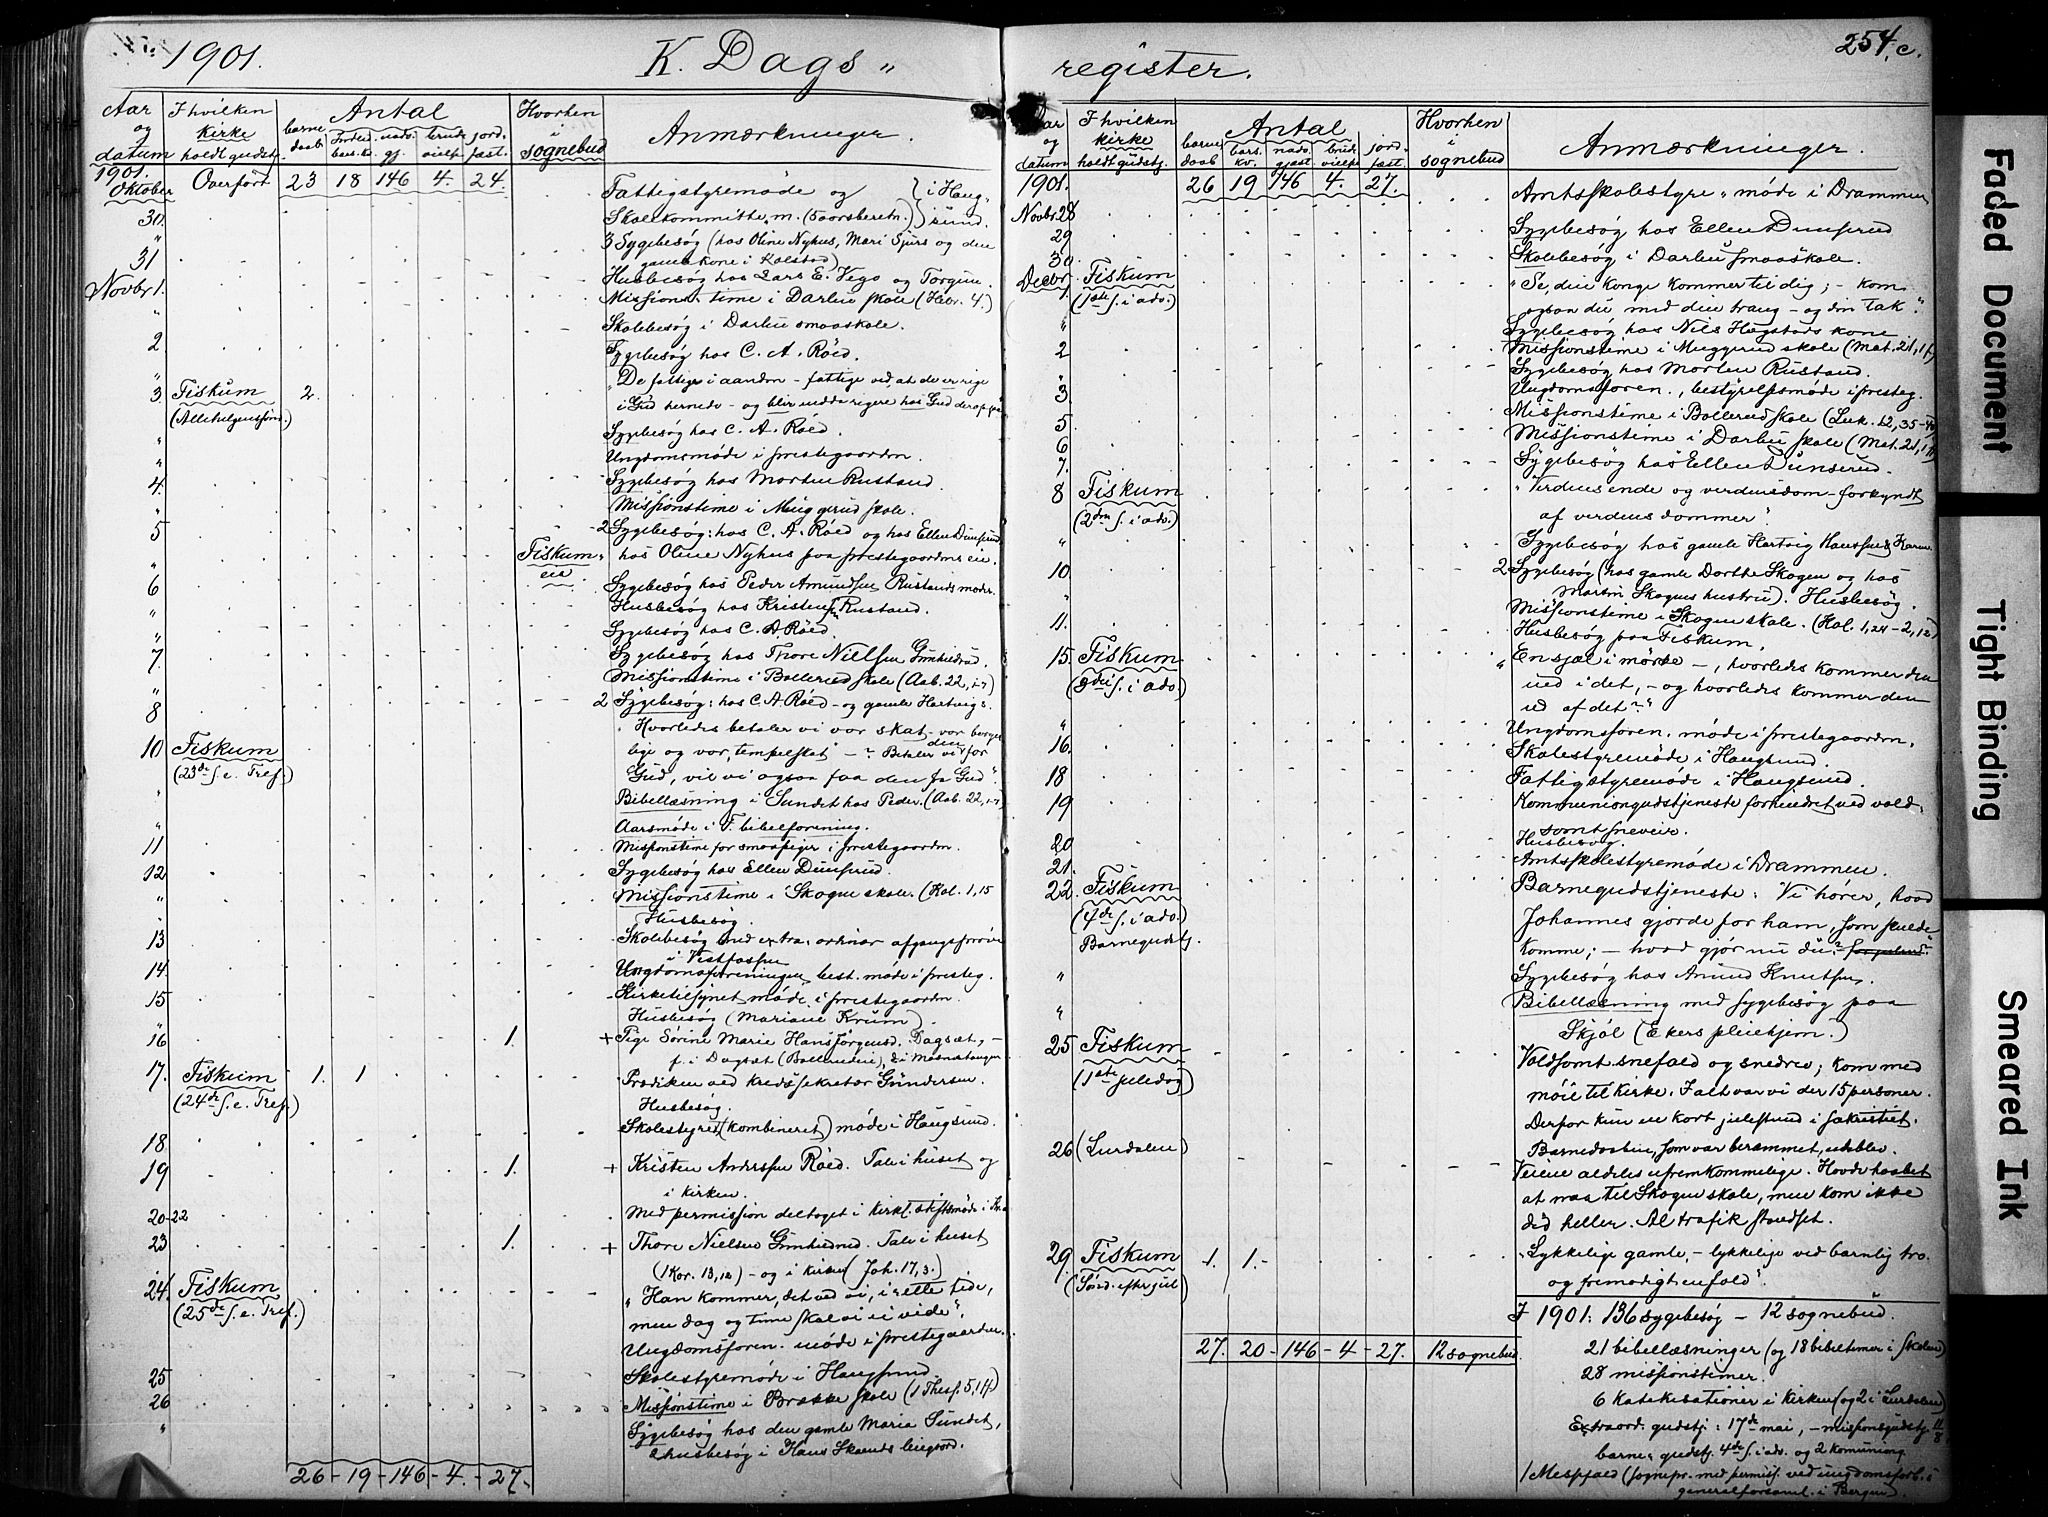 1901.
K. Dags„
Aar og datum
I hvilken kirke holdt gudstj.
Antal
barne daab
nadv. gj.
brude vielse
jord. fæst.
Hvorhen i sognebud
Anmærkninger.
1901.
Oktober Overført 23 18 146 4. 24.
Fattigstyremøde og
30. Skolekommitte m. (5 aarsberetn.) } i Haug- sund.
„ 3 Sygebesøg (hos Oline Nyhus, Mari Sjurs og den
31 gamle kone i Kolstad)
Husbesøg hos Lars E. Vego og Torgun.
Novbr 1. Missionstime i Darbu skole (Hebr. 4.)
„ Skolebesøg i Darbu smaaskole.
2 Sygebesøg hos C. A. Røed.
„ „De fattige i aanden - fattige ved, at de er rige
3. Fiskum 2. i Gud hernede - og blir endda rigere hos Gud deroppe
(Allehelgenssønd.)
Sygebesøg hos C. A. Røed.
„ Ungdomsmøde i prestegaarden.
4. Sygebesøg hos Morten Rustand.
„ Missionstime i Muggerud skole.
5 2 Sygebesøg: hos C. A. Røed og hos Ellen Dunserud
„ Fiskum- eie hos Oline Nyhus paa prestegaardens eie.
6 Sygebesøg hos Peder Amundsen Rustands moder.
„ Husbesøg hos Kristen Rustand.
„ Sygebesøg hos C. A. Røed.
7 Sygebesøg hos Thore Nielsen Gunhildrud.
„ Missionstime i Bollerud skole (Aab. 22, 1-7)
8 2 Sygebesøg: hos C. A. Røed - og gamle Hartvigs.
10 Fiskum „Hvorledes betaler vi vor skat - vor borger
(23de s. e. Tref.) lige og vor „tempelskat“ - ? Betaler vi den for
Gud, vil vi ogsaa faa den fra Gud“.
„ Bibellæsning i Sundet hos Peder. (Aab. 22, 1-7)
„ Aarsmøde i F. bibelforening.
11 Missionstime for smaapiger i prestegaarden.
12 Sygebesøg hos Ellen Dunserud.
„ Missionstime i Skogen skole. (Kol. 1, 15
Husbesøg.
13 Skolebesøg med extra-ordinær afgangsprøve
i Vestfossen
14. Ungdomsforeningen best. møde i presteg.
15 Kirketilsynet møde i prestegaarden.
Husbesøg (Mariane Krum).
„ 16 1. + Pige Sørine Marie Hansjørgensd. Dagsæt, -
f. i Dagsæt (Bollerudeie), d. i
17. Fiskum 1. 1 Prædiken ved kredssekretær Gundersen.
(24de s. e. Tref.) Husbesøg.
18 Skolestyret (kombineret) møde i Haugsund.
19 1. + Kristen Anderssen Røed. Tale i huset og
i kirken.
20-22 Med permission deltaget i kirkl. stiftsmøde i Kr.a
23 1. + Thore Nielsen Gunhildrud. Tale i huset
(1 Kor. 13, 12) - og i kirken (Joh. 17, 3.)
24. Fiskum „Han kommer, det ved vi, i rette tid,
(25de s. e. Tref.) men dag og time skal vi ei vide“.
Ungdomsforen. møde i prestegaarden.
25 Skolestyremøde i Haugsund.
26 Missionstime i Brække skole (1 Thess. 5, 1 ff)
„ Sygebesøg hos den gamle Maria Sundet,
2 husbesøg i Hans Skaens leiegaard.
26 - 19 - 146 - 4. - 27.
register.
254, c.
Aar og datum
I hvilken kirke holdt gudstj.
Antal
barne daab
bars. kv.
nadv. gjæst.
brud. vielse
jord- fæst.
Hvorhen i sognebud
Anmærkninger.
1901. 26 19 146 4. 27. Amtsskolestyre„ møde i Drammen
Novbr. 28 Sygebesøg hos Ellen Dunserud
29 Skolebesøg i Darbu smaaskole.
30.
Decbr 1. Fiskum „Se, din konge kommer til dig; - kom
(1ste s. i adv.) ogsaa du med din trang - og din tak“.
„ Sygebesøg hos Nils Hagstads kone
2 Missionstime i Muggerud skole (Mat. 21, 1 f)
„ Sygebesøg hos Morten Rustand.
3. Ungdomsforen., bestyrelsesmøde i presteg.
5 Missionstime i Bollerud skole (Luk. 12, 35-40)
6 Missionstime i Darbu skole (Mat. 21, 1 ff)
7. Sygebesøg hos Ellen Dunserud.
8 Fiskum „Verdens ende og verdensdom - forkyndt
(2den s. i adv.) af verdens dommer“.
„ Sygebesøg hos gamle Hartvig Hanssens Karen.
10 2 Sygebesøg (hos gamle Dorthe Skogen og hos
„ Martin Skogens hustru). Husbesøg.
Missionstime i Skogen skole. (Kol. 1, 24 - 2, 12)
11. Husbesøg paa Fiskum.
15. Fiskum „En sjæl i mørke -, hvorledes kommer den
(3die s. i adv.) ned i det, - og hvorledes kommer den
ud af det?“
„ Ungdomsforen. møde i prestegaarden.
16. Skolestyremøde i Haugsund.
18 Fattigstyremøde i Haugsund.
19 Kommuniongudstjeneste forhindret ved vold-
somt sneveir.
20 Husbesøg.
21. Amtsskolestyremøde i Drammen.
22. Fiskum Barnegudstjeneste: Vi hører, hvad
(4de s. i adv.) Johannes gjorde for ham, som skulde
Barnegudstj. komme; - hvad gjør nu du?
„ Sygebesøg hos Amund Knutsen.
„ Bibellæsning med sygebesøg paa
Skjøl (Ekers pleiehjem.)
25 Fiskum Voldsomt snefald og snedrev; kom med
(1ste juledag) møie til kirke. I alt var vi der 15 personer.
Derfor kun en kort julestund i sakristiet.
Barnedaaben, som var berammet, udeblev.
26 (Lurdalen) Veiene aldeles ufremkommelige. Havde haabet
at naa til Skogen skole, men kom ikke
did heller. Al trafik standset.
29. Fiskum 1. 1. - „Lykkelige gamle, - lykkelige ved barnlig tro
(Sønd. efter jul) og fremodigt enfold“.
27. 20 - 146 - 4 - 27. 12 sognebud.
I 1901: 136 sygebesøg - 12 sognebud.
21 bibellæsninger (og 18 bibeltimer i skolen)
28 missionstimer.
6 katekisationer i kirken (og 2 i Lurdalen)
Extraord. gudstj: 17de mai, - missionsgudstj. 11/8
barne-gudstj. 4de s. i adv. og 2 komuniong
1 Messefald (sognepr. med permiss. ved ungdomsforb.s
generalforsaml. i Bergen).
Faded Document
Tight Binding
Smeared Ink